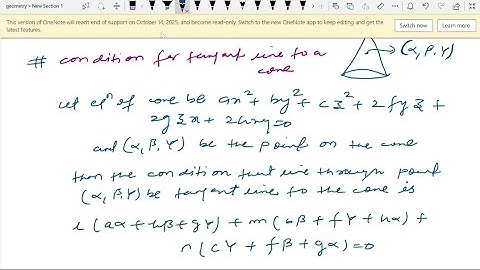 geometry > New Section 1
This version of OneNote will reach end of support on October 14, 2025, and become read-only. Switch to the new OneNote app to keep editing and get the
latest features.
Switch now
Learn more
# condition for tangent line to a
cone
(α, β, γ)
let eqⁿ of cone be ax² + by² + cz² + 2fyz +
2gzx + 2hxy = 0
and (α, β, γ) be the point on the cone
then the condition that line through point
(α, β, γ) be tangent line to the cone is
l(aα + hβ + gγ) + m(bβ + fγ + hα) +
n(cγ + fβ + gα) = 0